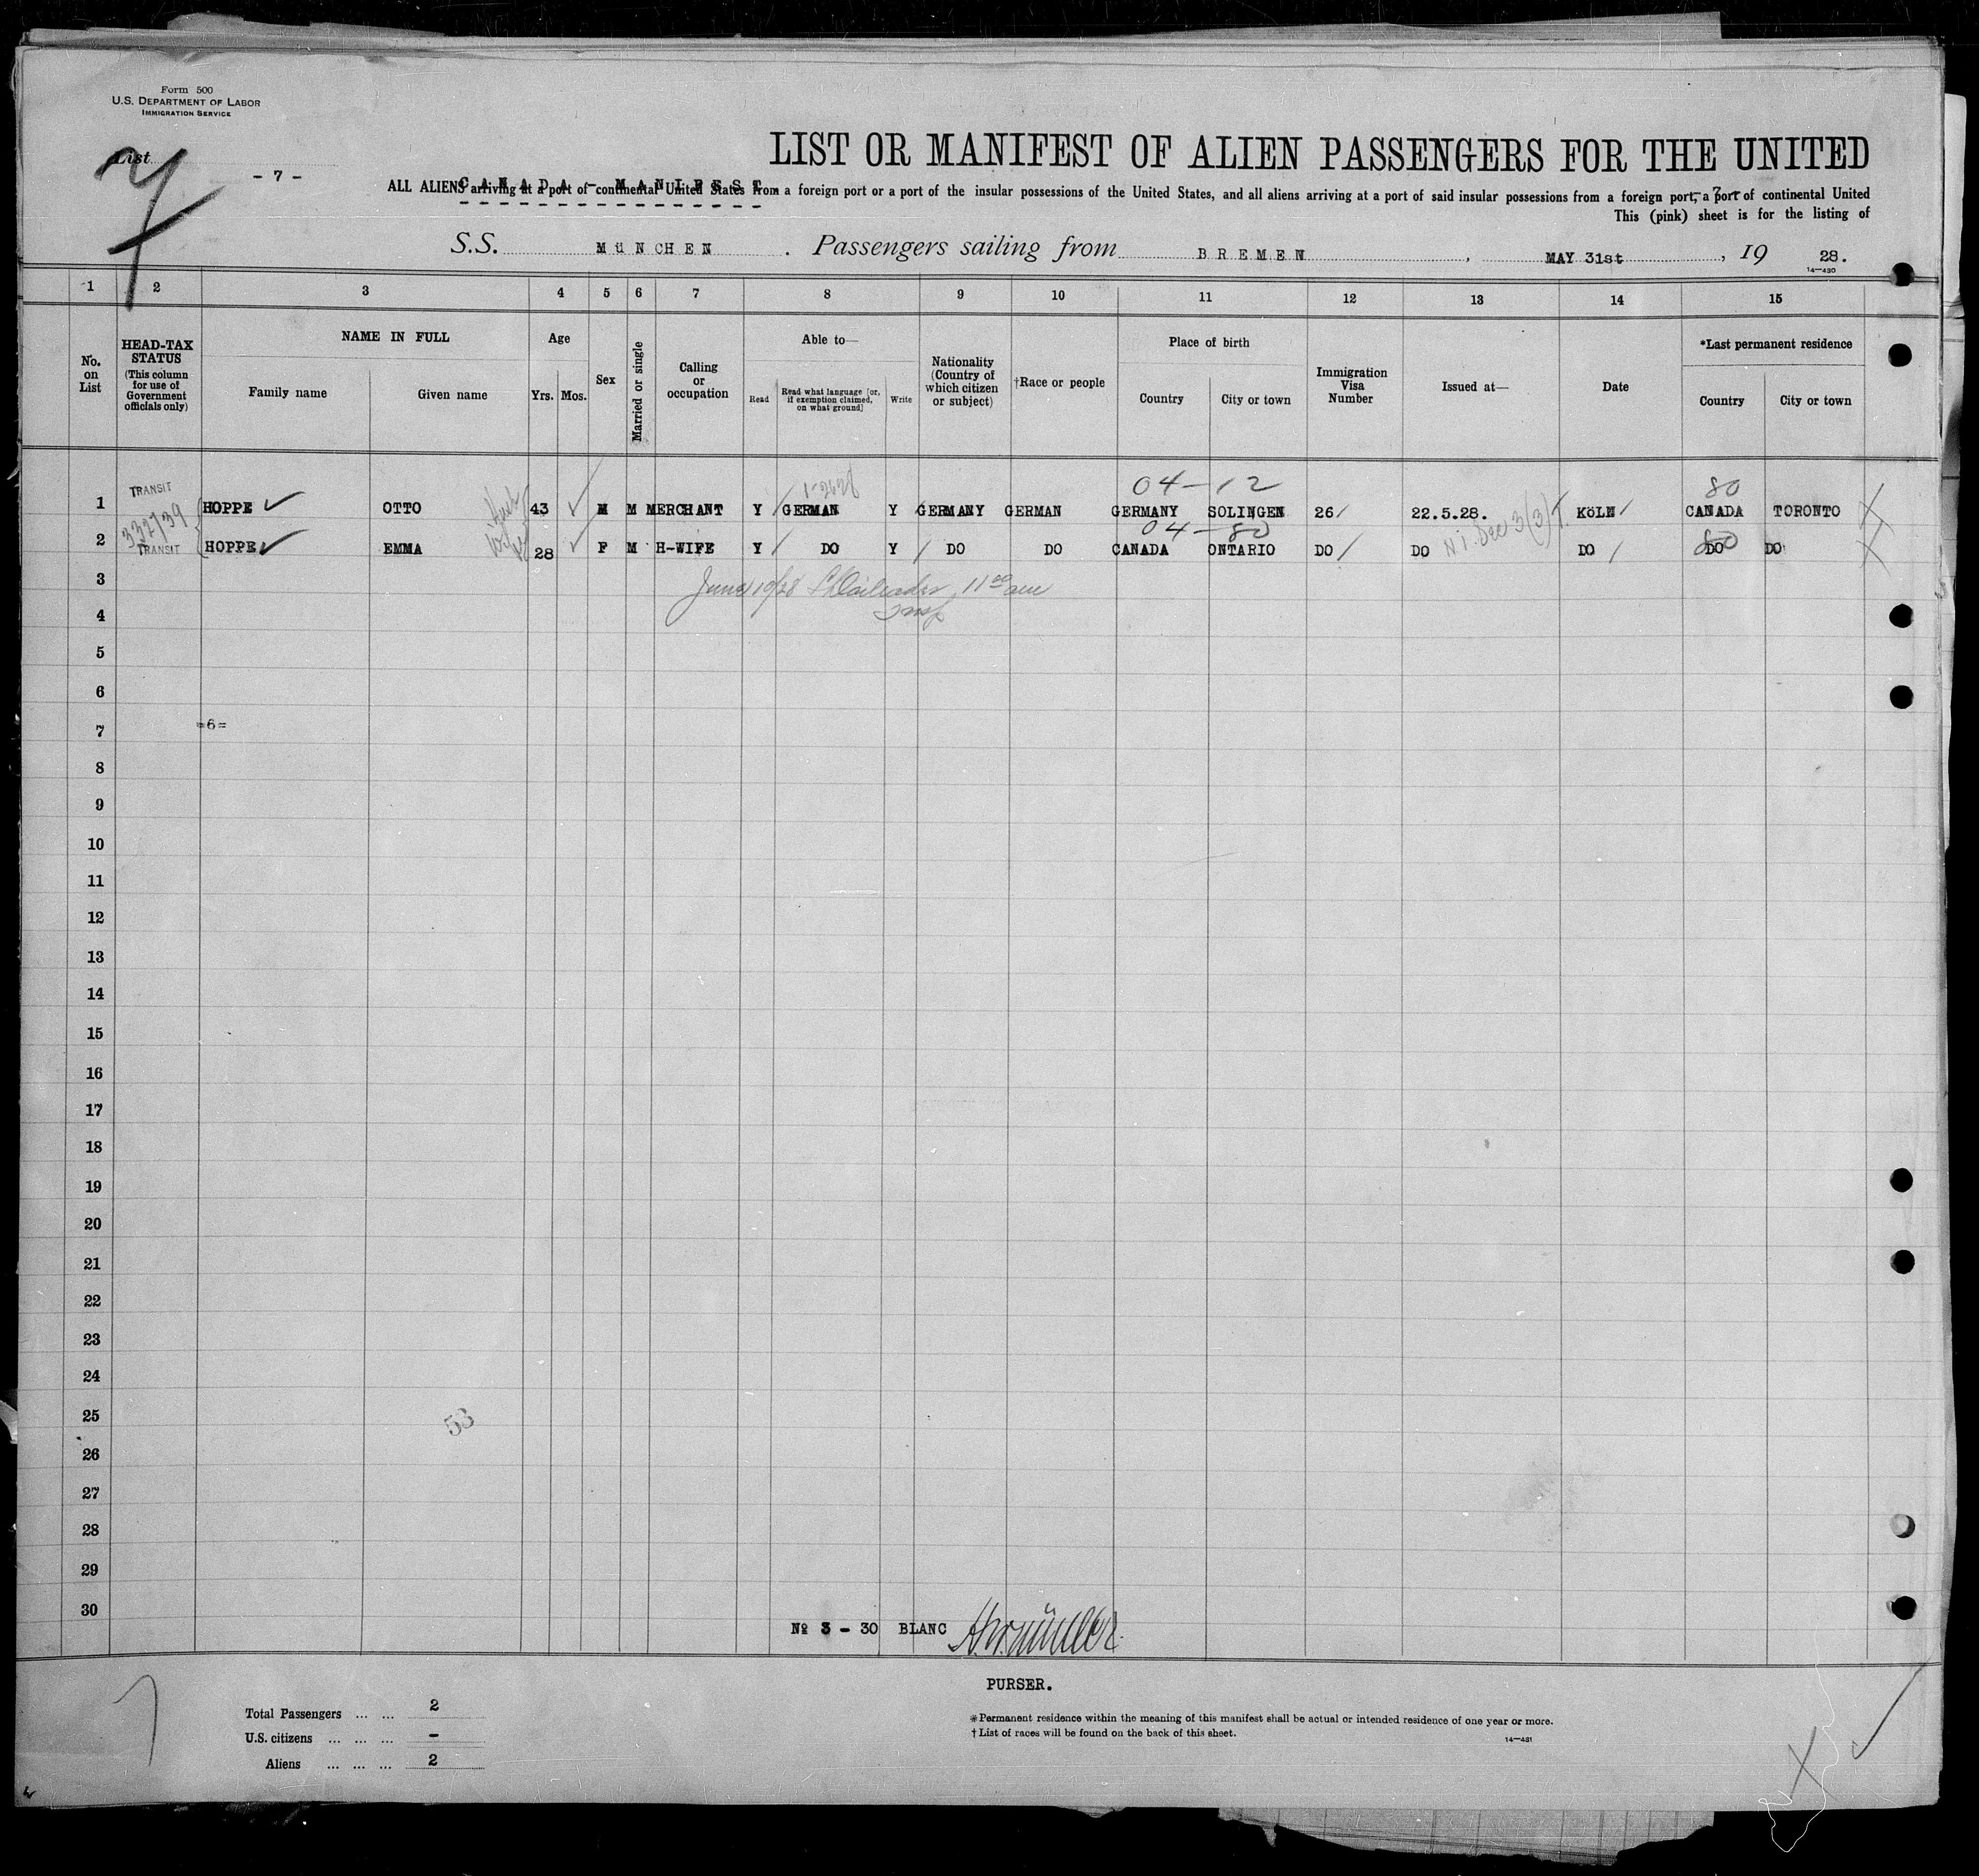 Form 500
U.S. DEPARTMENT OF LABOR
IMMIGRATION SERVICE
List
7
- 7 -
LIST OR MANIFEST OF ALIEN PASSENGERS FOR THE UNITED
CANADA - MANIFEST.
ALL ALIENS arriving at a port of continental United States from a foreign port or a port of the insular possessions of the United States, and all aliens arriving at a port of said insular possessions from a foreign port, a port of continental United
- 7 -
This (pink) sheet is for the listing of
S.S. MüNCHEN . Passengers sailing from BREMEN , MAY 31st , 19 28.
14—430
1 2 3 4 5 6 7 8 9 10 11 12 13 14 15
No. on List
HEAD-TAX STATUS
(This column for use of Government officials only)
NAME IN FULL
Family name Given name
Age
Yrs. Mos.
Sex
Married or single
Calling or occupation
Able to—
Read Read what language [or, if exemption claimed, on what ground] Write
Nationality (Country of which citizen or subject)
†Race or people
Place of birth
Country City or town
Immigration Visa Number
Issued at—
Date
*Last permanent residence
Country City or town
04-12 80
1 TRANSIT HOPPE OTTO 43 M M MERCHANT Y GERMAN Y GERMANY GERMAN GERMANY SOLINGEN 26 22.5.28. KöLN CANADA TORONTO
332739
04-80
2 TRANSIT HOPPE EMMA 28 F M H-WIFE Y DO Y DO DO CANADA ONTARIO DO DO DO DO DO
80
3
June 10/28 11 00 am
4
Insp
5
6
7 =6=
8
9
10
11
12
13
14
15
16
17
18
19
20
21
22
23
24
25 53
26
27
28
29
30
№ 3 - 30 BLANC
PURSER.
Total Passengers ... ... 2
U.S. citizens ... ... ... -
Aliens ... ... ... 2
*Permanent residence within the meaning of this manifest shall be actual or intended residence of one year or more.
†List of races will be found on the back of this sheet.
14—431